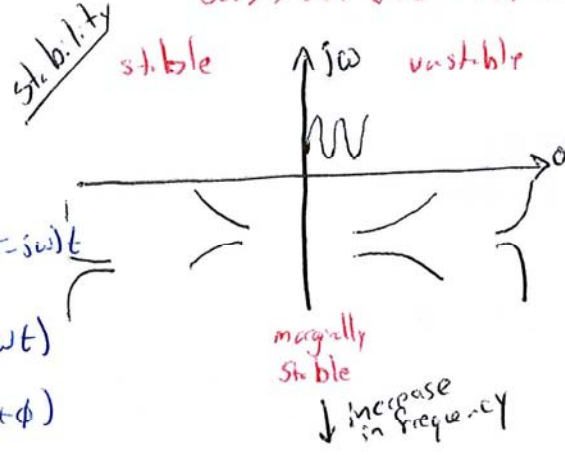 stability
stable
jω
unstable
σ
-jω)t
ωt)
+φ)
marginally
stable
↓ increase
in frequency